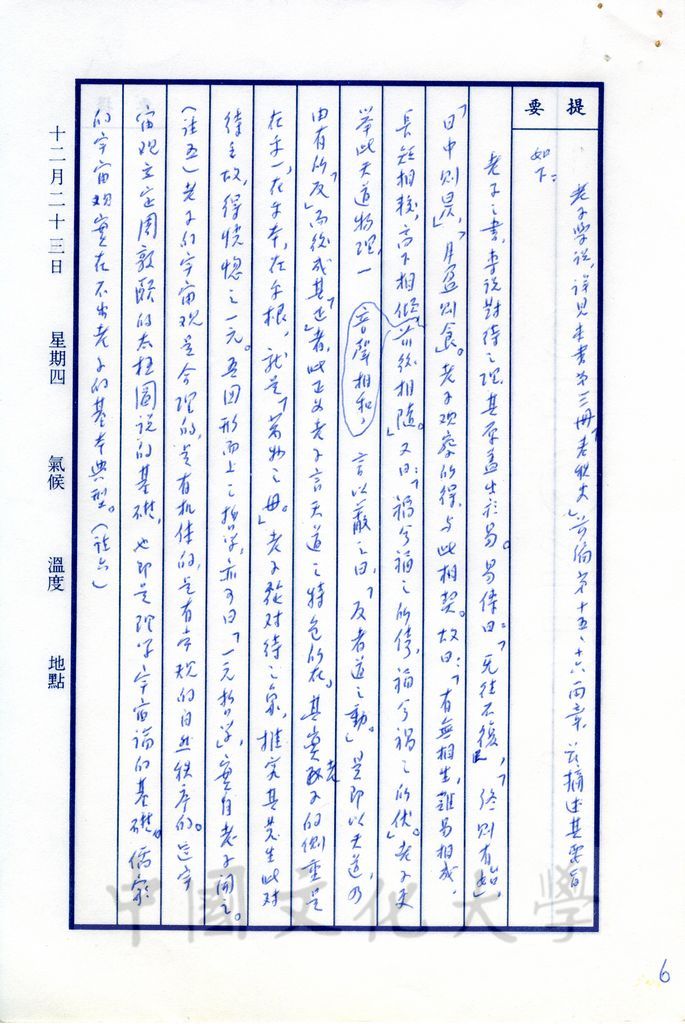 提要
老子學說，詳見本書第三冊「老 」前編第十五、十六兩章，茲摘述其要旨
如下：
老子之書，專說對待之理，其原蓋出於易。易傳曰：「无往不復」，「終則有始」，
「日中則昃」，「月盈則食」。老子觀察所得，與此相契。故曰：「有無相生，難易相成，
長短相較，高下相傾，音聲相和，前後相隨」。又曰：「禍兮福之所倚，福兮禍之所伏」。老子更
舉此天道物理，一言以蔽之曰，「反者道之動」。是即以天道，乃
由有所「反」而後成其「正」者，此正為老子言天道之特色所在。其實老子的側重是
在乎一，在乎本，在乎根，就是「萬物之母」。老子從對待之象，推究其發生此對
待之故，得恍惚之一元。吾國形而上之哲學，亦可曰「一元哲學」，實自老子開之。
（註五）老子的宇宙观是合理的，是有机体的，是有常规的自然秩序的。這宇
宙观立定周敦頤的太极圖说的基礎，也即是理学宇宙論的基礎。儒家
的宇宙观實在不出老子的基本典型。（註六）
十二月二十三日 星期四 氣候 溫度 地點
中國文化大學
6